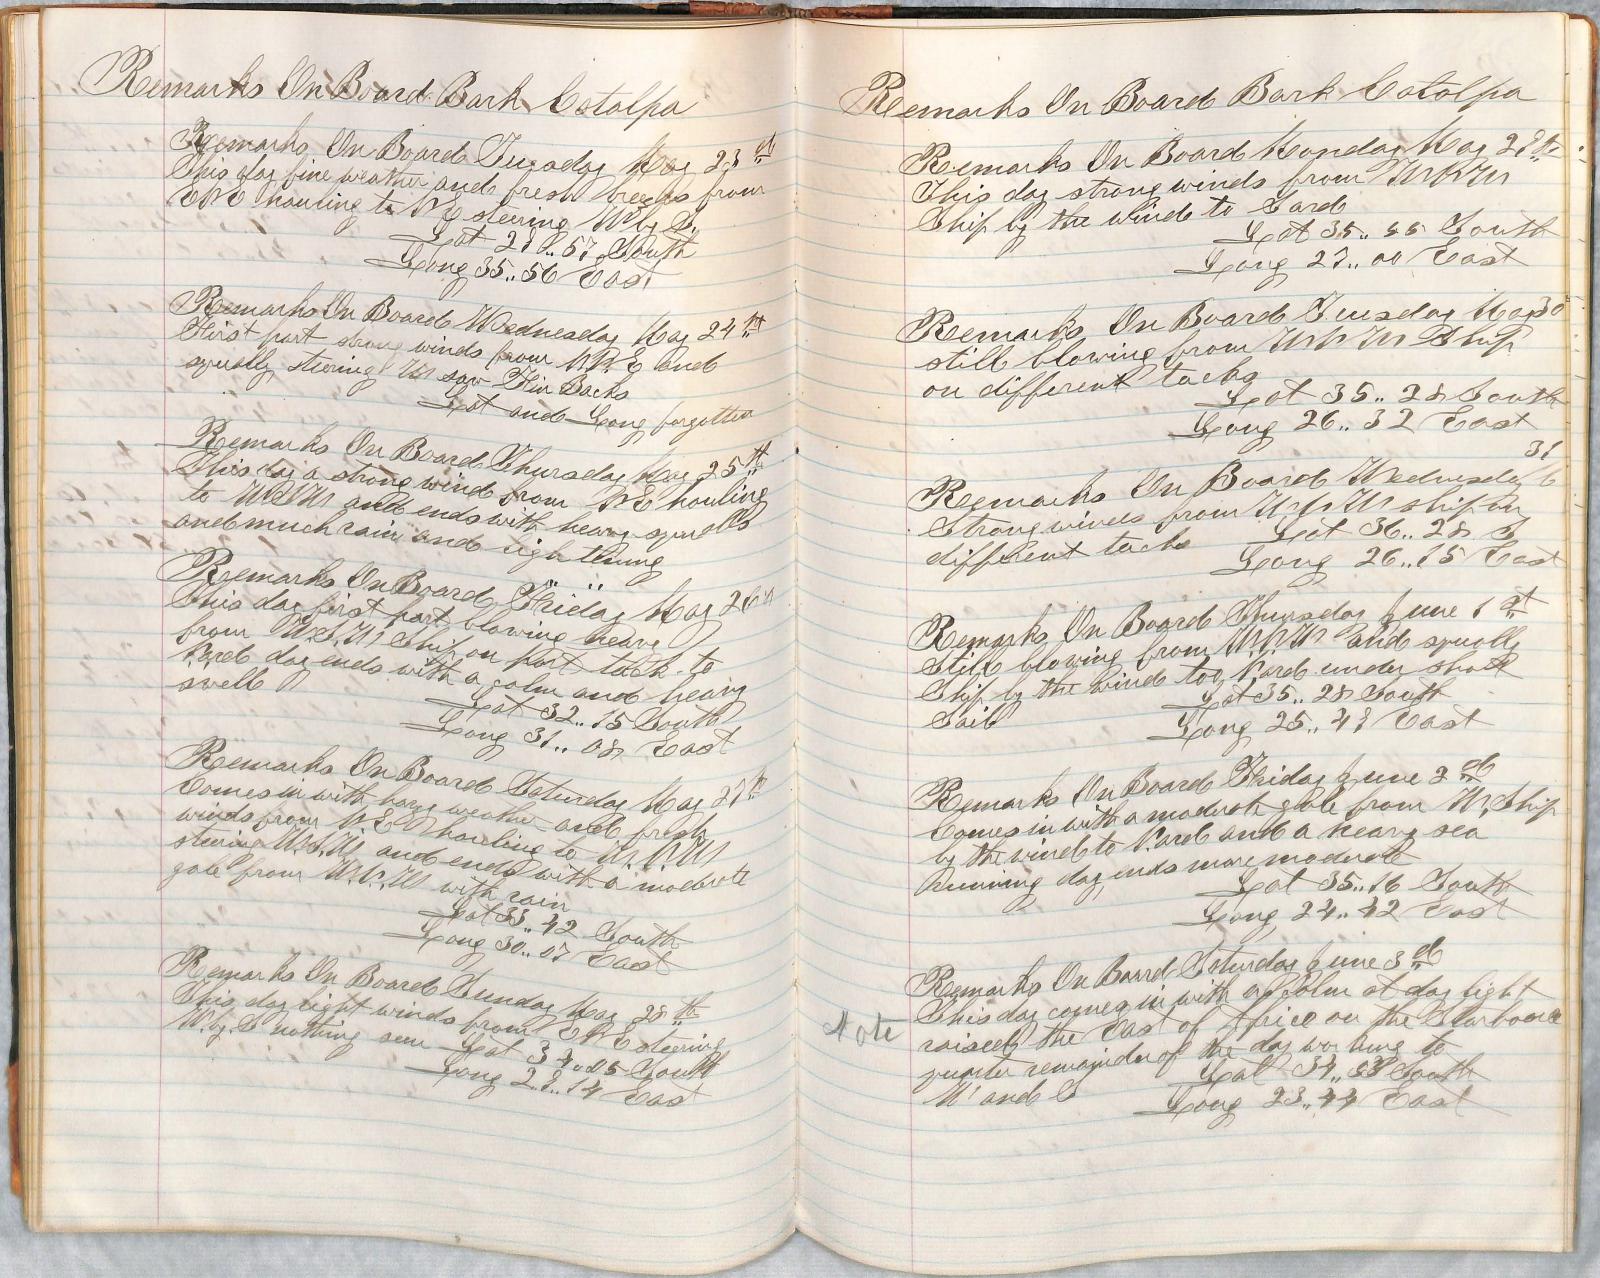 Remarks On Board Bark Catalpa
Remarks On Board Tuesday May 23rd
This day fine weather and fresh breezes from
ENE hauling to NE steering W by S.
Lat 28..57 South
Long 35..56 East
Remarks On Board Wednesday May 24th
First part strong winds from NNE and
squally steering W saw Fin Backs
Lat and Long forgotten
Remarks On Board Thursday May 25th
This day a strong wind from NE hauling
to WSW and ends with heavy squalls
and much rain and lightening
Remarks On Board Friday May 26th
This day first part blowing heavy
from W.S.W. Ship on port tack to
N.ard day ends with a calm and heavy
swell
Lat 32..15 South
Long 31..08 East
Remarks On Board Saturday May 27th
Comes in with hazy weather and fresh
winds from NE hauling to W.N.W
steering W.S.W and ends with a moderate
gale from W.N.W with rain
Lat 33..42 South
Long 30..07 East
Remarks On Board Sunday May 28th
This day light winds from ENE steering
W.by.S nothing seen Lat 34..05 South
Long 28..14 East
Remarks On Board Bark Catalpa
Remarks On Board Monday May 29th
This day strong winds from WNW
Ship by the wind to Sard
Lat 35..55 South
Long 27..00 East
Remarks On Board Tuesday May 30
still blowing from WNW Ship
on different tacks
Lat 35..28 South
Long 26..32 East
31
Remarks On Board Wednesday
Strong winds from WNW ship on
different tacks Lat 36..28 S
Long 26..15 East
Remarks On Board Thursday June 1st
Still blowing from W.N.W and squally
Ship by the wind to N.ard under short
Sail Lat 35..28 South
Long 25..43 East
Remarks On Board Friday June 2nd
Comes in with a moderate gale from W. Ship
by the wind to N.ard and a heavy sea
Running day ends more moderate
Lat 35..16 South
Long 24..42 East
Remarks On Board Saturday June 3rd
This day comes in with a calm at day light
Note raised the East of Africa on the Starboard
quarter remainder of the day working to
W and S Lat 34.. South
Long 23..44 East